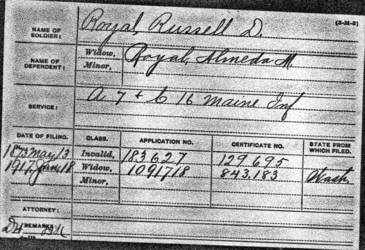 NAME OF SOLDIER: Royal, Russell D. (3-312)
NAME OF DEPENDENT: Widow, Royal, Almeda M
Minor,
SERVICE: A 7 & C 16 Maine Inf
DATE OF FILING. CLASS. APPLICATION NO. CERTIFICATE NO. STATE FROM WHICH FILED.
1873 May 13 Invalid, 183627 129695
1917 Jan 18 Widow, 1091718 843,183 Wash.
Minor,
ATTORNEY:
REMARKS: